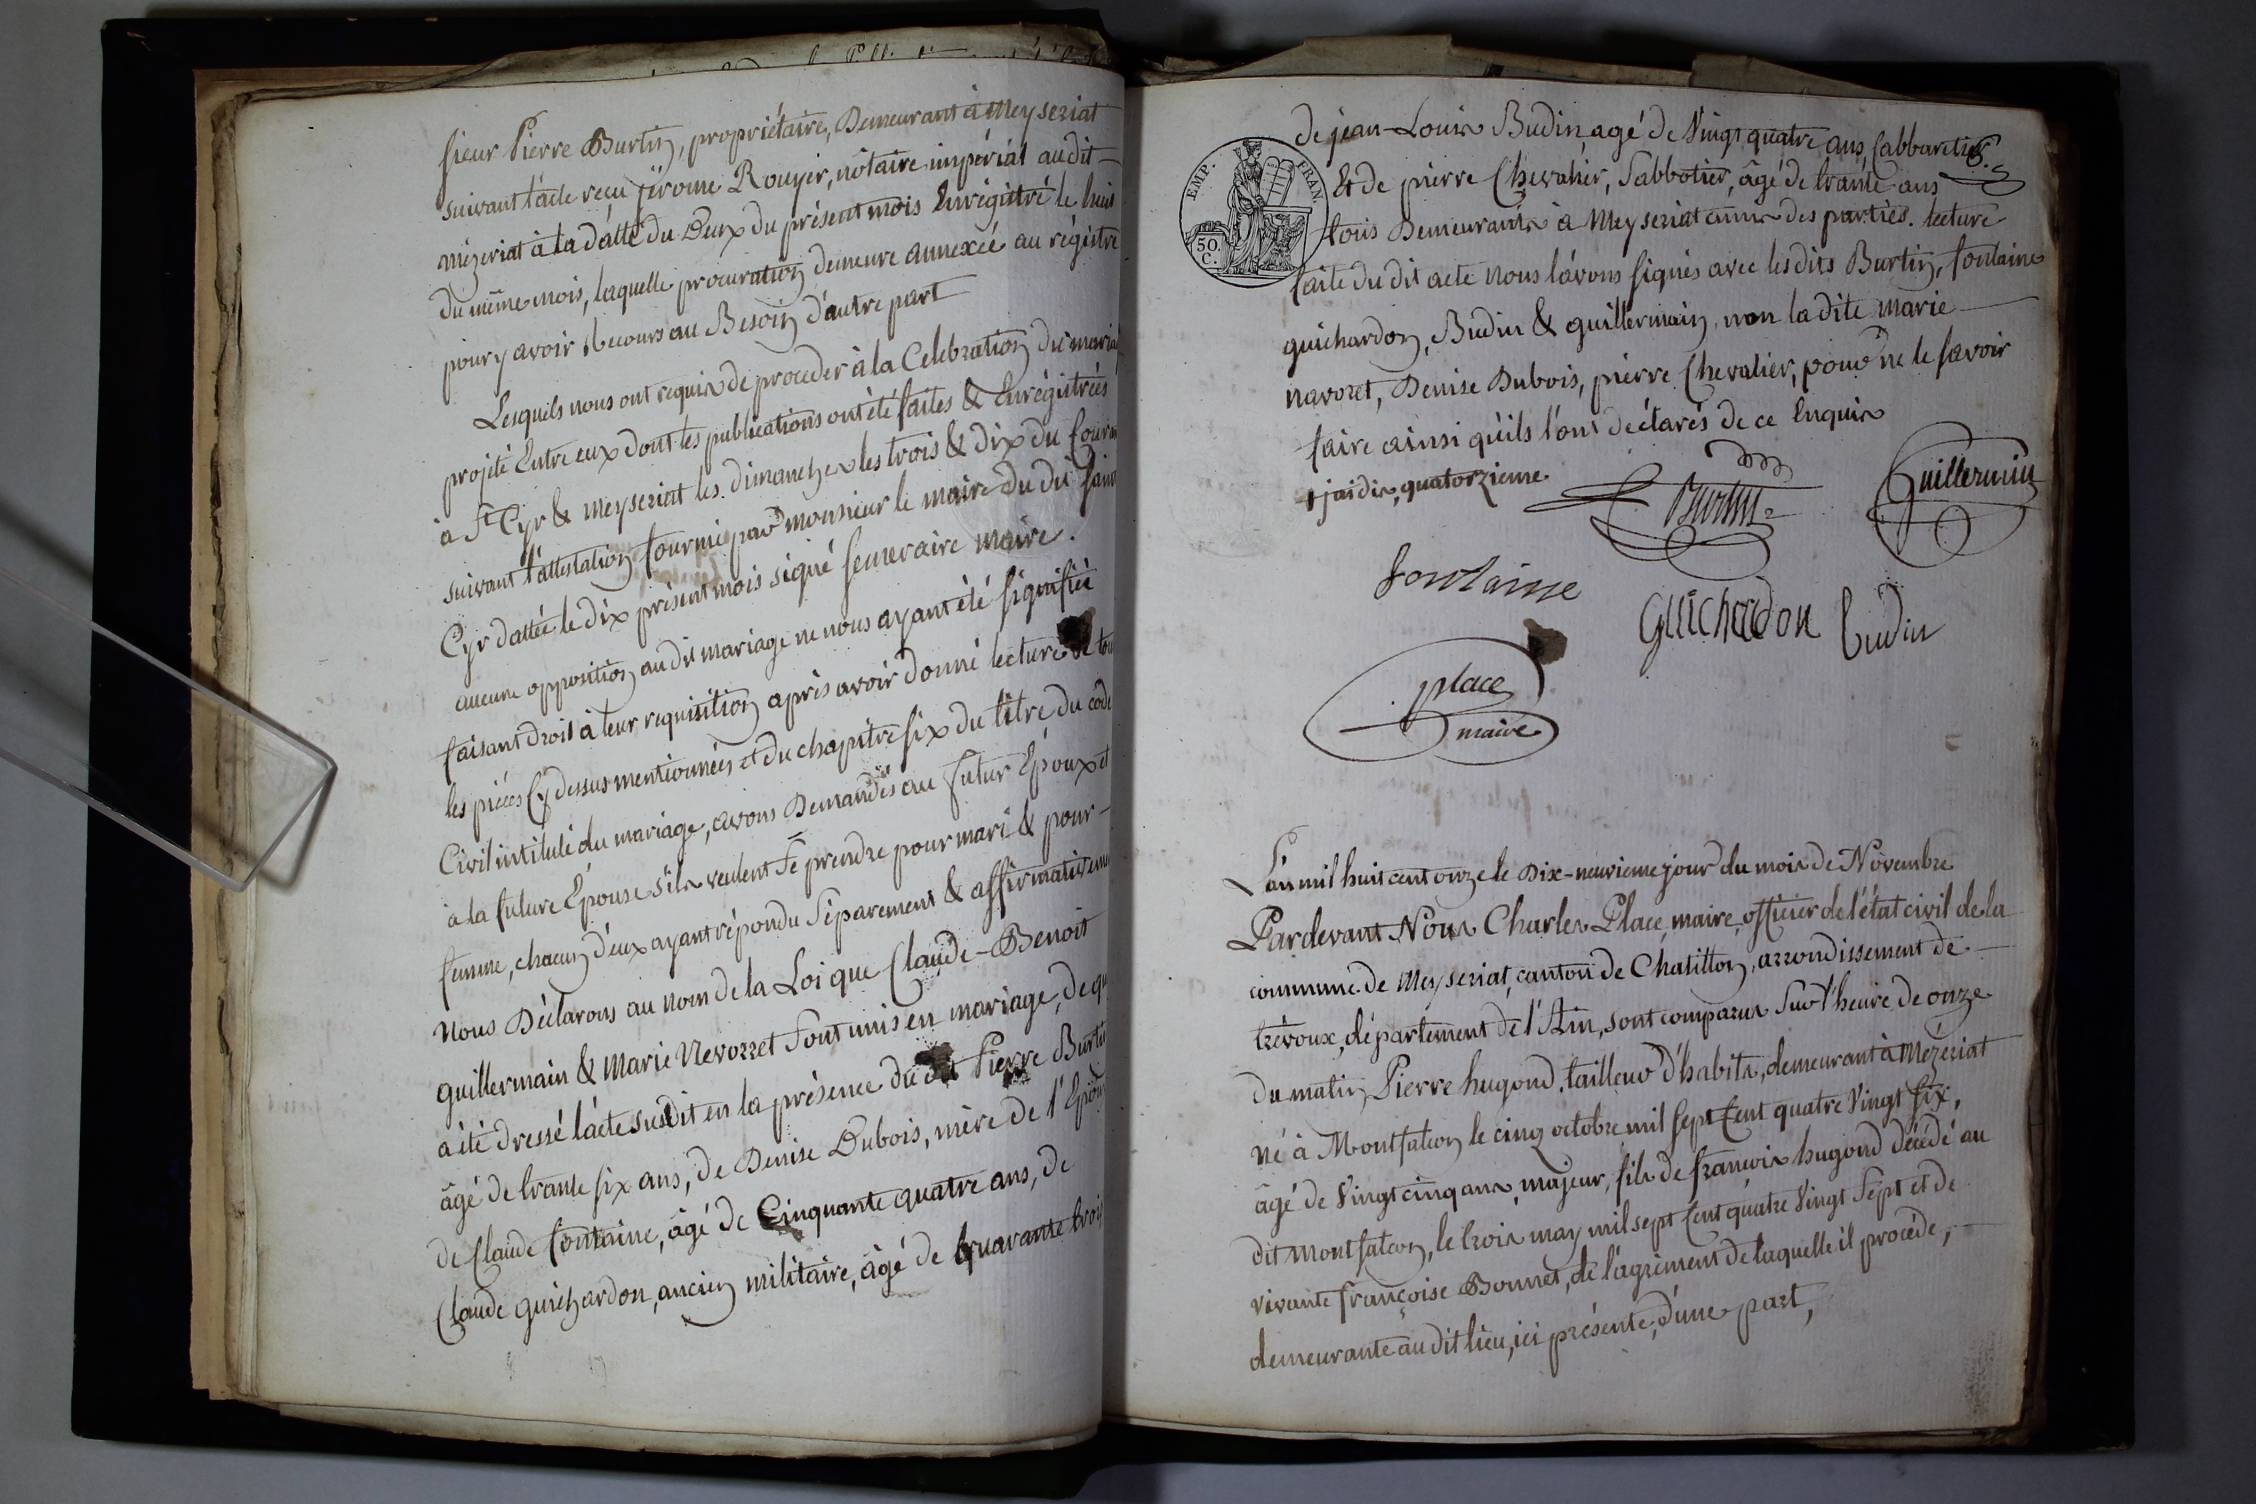 sieur Pierre Burtin, propriétaire, Demeurant à Meyseriat
suivant l'acte reçu jérome Rouyer, nôtaire impérial au dit
mézeriat à la datte du Deux du présent mois Enrégistré le huit
du même mois, laquelle procuration demeure annexée au régistre
pour y avoir Recours au Besoin d'autre part
Lesquels nous ont requis de proceder à la Celebration du maria
projeté Entre eux dont les publications ont été faites & Enrégistrées
à St Cyr & meyseriat les dimanches les trois & dix du Couran
suivant l'attestation fourni par monsieur le maire du dit Saint
Cyr dattée le dix présent mois signé maire.
aucune opposition au dit mariage ne nous ayant été signifiée
faisant droit à leur requisition après avoir donné lecture de tou
les piéces Cy dessus mentionnées et du chapitre six du titre du code
Civil intitulé du mariage, avons Demandés au futur Époux et
a la future Épouse s'ils veulent Se prendre pour mari & pour
femme, chacun d'eux ayant répondu Séparement & affirmativem
nous Déclarons au nom de la Loi que Claude-Benoit
guillermain & Marie Nevorret sont unis en mariage, de qu
a été dressé l'acte susdit en la présence du dit Pierre Burtin
âgé de trante six ans, de Denise Dubois, mère de l'Épous
de Claude fontaine, âgé de Cinquante quatre ans, de
Claude guichardon, ancien militaire, âgé de quarante trois
de jean-Louis Budin, agé de Vingt quatre ans, Cabbaretier
EMP. FRAN.
50. C.
Et de pierre Chevalier, Sabbotier, âgé de trante ans
tous Demeurants à Meyseriat amis des parties. lecture
faite du dit acte nous l'avons signés avec les dits Burtin, fontaine
guichardon, Budin & guillermain, non la dite marie
navoret, Denise Dubois, pierre Chevalier, pour ne le savoir
faire ainsi qu'ils l'ont déclarés de ce Enquis
jaidis, quatorzieme
Burtin
Guillermin
fontaine
Guichardon
budin
place
maire
L'an mil huit cent onze le Dix-neuvieme jour du mois de Novembre
Pardevant Nous Charles Place, maire, officier de l'état civil de la
commune de Meyseriat, canton de Chatillon, arrondissement de
trévoux, département de l'Ain, sont comparus Sur l'heure de onze
du matin Pierre hugond, tailleur d'habits, demeurant à Mézériat
né à Montfalcon le cinq octobre mil sept Cent quatre Vingt six,
âgé de Vingt cinq ans, majeur, fils de françois hugond décédé au
dit Montfalcon, le trois may mil sept Cent quatre Vingt Sept et de
vivante françoise Bonnet, de l'agrément de laquelle il procède,
demeurante au dit lieu, ici présente, d'une part,